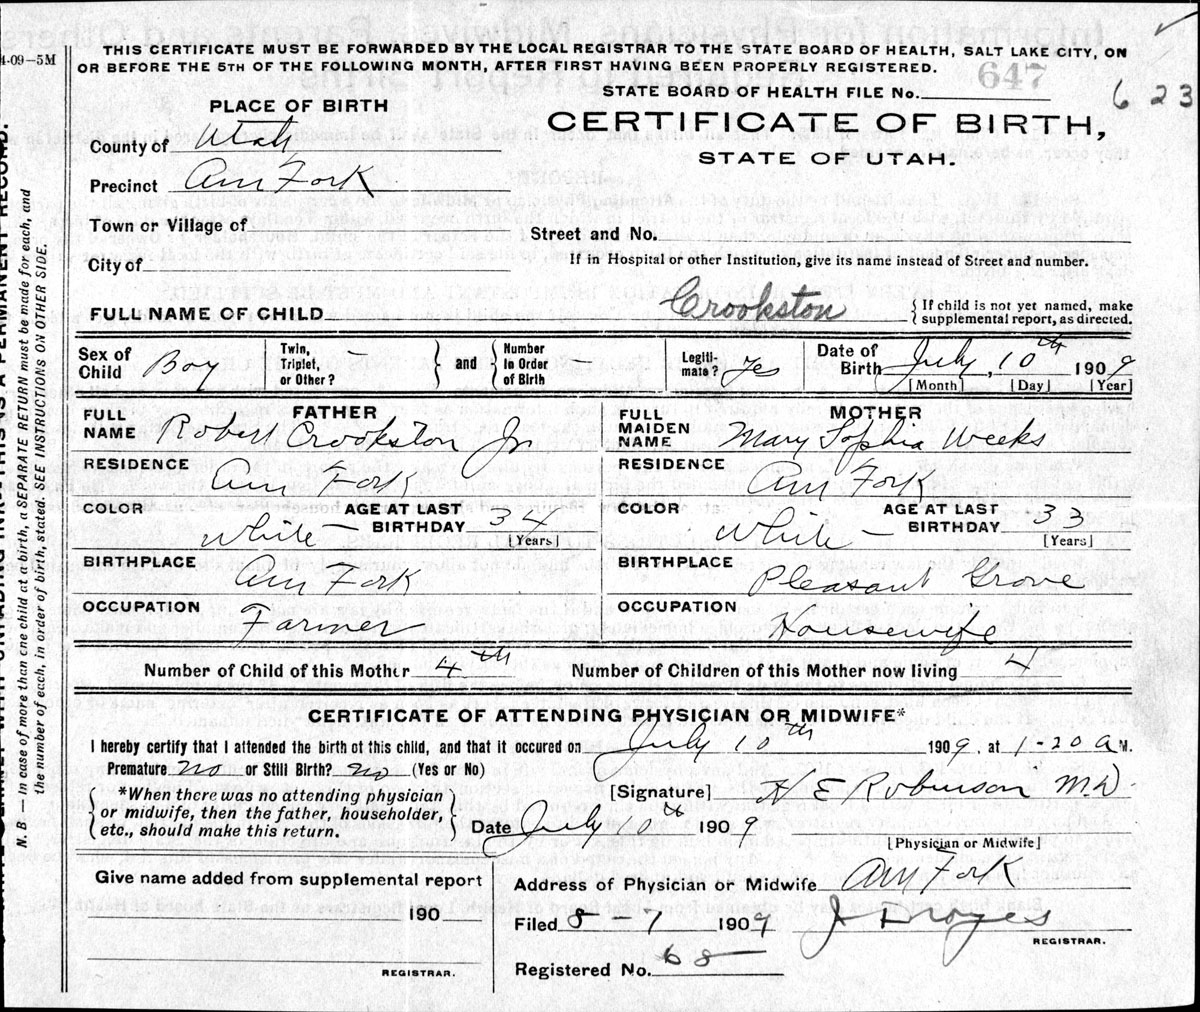 4-09—5M
THIS CERTIFICATE MUST BE FORWARDED BY THE LOCAL REGISTRAR TO THE STATE BOARD OF HEALTH, SALT LAKE CITY, ON
OR BEFORE THE 5TH OF THE FOLLOWING MONTH, AFTER FIRST HAVING BEEN PROPERLY REGISTERED.
647
STATE BOARD OF HEALTH FILE No.
623
PLACE OF BIRTH
CERTIFICATE OF BIRTH,
STATE OF UTAH.
County of Utah
Precinct Am Fork
Town or Village of
Street and No.
City of
If in Hospital or other Institution, give its name instead of Street and number.
FULL NAME OF CHILD Crookston
{ If child is not yet named, make
supplemental report, as directed.
Sex of Child Boy
Twin, Triplet, or Other? –
and
Number in Order of Birth –
Legiti-mate? Yes
Date of Birth July, 10th 1909
[Month] [Day] [Year]
FATHER
FULL NAME Robert Crookston Jr
RESIDENCE Am Fork
COLOR White – AGE AT LAST BIRTHDAY 34 [Years]
BIRTHPLACE Am Fork
OCCUPATION Farmer
MOTHER
FULL MAIDEN NAME Mary Sophia Weeks
RESIDENCE Am Fork
COLOR White – AGE AT LAST BIRTHDAY 33 [Years]
BIRTHPLACE Pleasant Grove
OCCUPATION Housewife
Number of Child of this Mother 4th Number of Children of this Mother now living 4
CERTIFICATE OF ATTENDING PHYSICIAN OR MIDWIFE*
I hereby certify that I attended the birth of this child, and that it occured on July 10th 1909, at 1-20 a M.
Premature? no or Still Birth? no (Yes or No)
*When there was no attending physician
or midwife, then the father, householder,
etc., should make this return.
[Signature] H E Robinson MD
Date July 10th 1909
[Physician or Midwife]
Give name added from supplemental report
190
REGISTRAR.
Address of Physician or Midwife Am Fork
Filed 8-1 1909
REGISTRAR.
Registered No. 68
N. B. — In case of more than one child at a birth, a SEPARATE RETURN must be made for each, and
the number of each, in order of birth, stated. SEE INSTRUCTIONS ON OTHER SIDE.